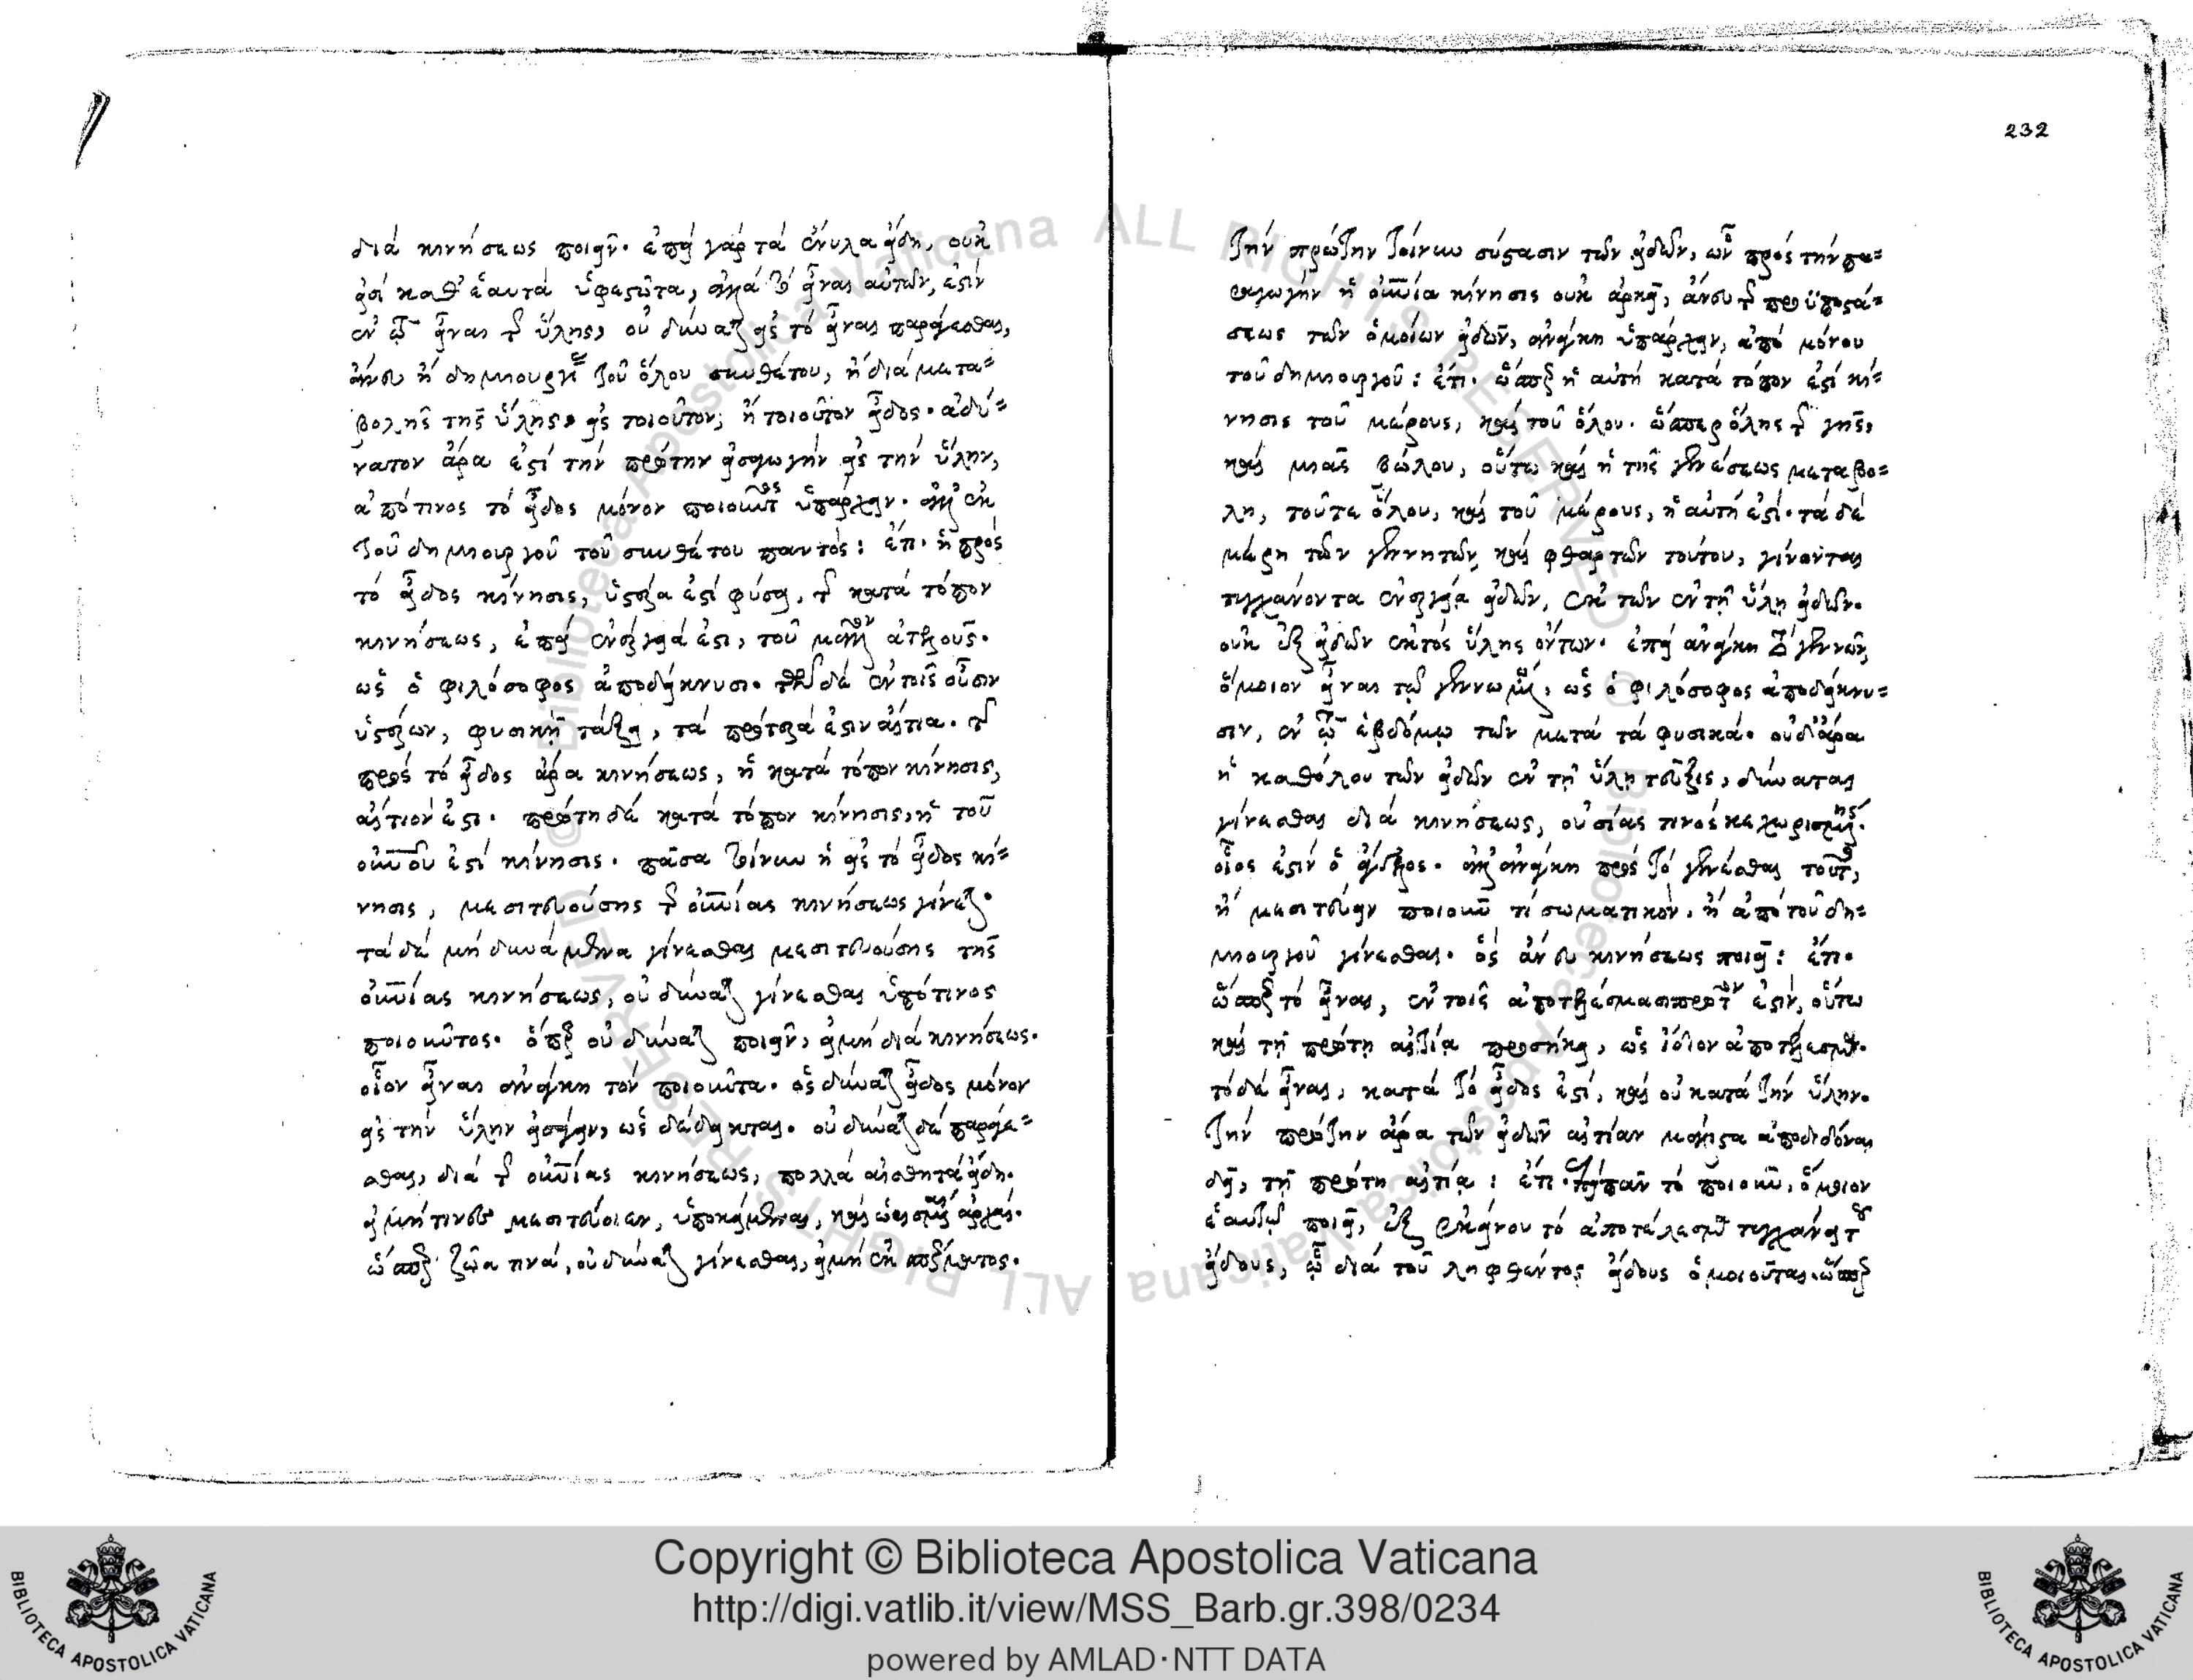 διά κινήσεως ποιεῖν. ἐπεί γάρ τά ἔνυλα εἴδη, οὐκ
εἰσί καθ' ἑαυτά ὑφεστῶτα, ἀλλά τό εἶναι αὐτῶν, ἐστίν
ἐν τῷ εἶναι τῆς ὕλης, οὐ δύναται εἰς τό εἶναι παράγεσθαι,
ἄνευ ἤ δημιουργίας τοῦ ὅλου συνθέτου, ἤ διά μετα=
βολῆς τῆς ὕλης εἰς τοιοῦτον, ἤ τοιοῦτον εἶδος. ἀδύ=
νατον ἄρα ἐστί τήν πρώτην εἰσαγωγήν εἰς τήν ὕλην,
ἀπό τινος τό εἶδος μόνον ποιοῦντος ὑπάρχειν. ἀλλ' ἐκ
τοῦ δημιουργοῦ τοῦ συνθέτου παντός: ἔτι. ἡ πρός
τό εἶδος κίνησις, ὑστέρα ἐστί φύσει, τῆς κατά τόπον
κινήσεως, ἐπεί ἐνέργειά ἐστι, τοῦ μᾶλλον ἀτελοῦς.
ὡς ὁ φιλόσοφος ἀποδείκνυσι. τῶν δέ ἐν τοῖς οὖσιν
ὑστέρων, φυσικῇ τάξει, τά πρότερά ἐστιν αἴτια. τῆς
πρός τό εἶδος ἄρα κινήσεως, ἡ κατά τόπον κίνησις,
αἴτιόν ἐστι. πρώτη δέ κατά τόπον κίνησις, ἡ τοῦ
οὐνοῦ ἐστί κίνησις. πᾶσα τοίνυν ἡ εἰς τό εἶδος κί=
νησις, μεσιτευούσης τῆς οὐνίας κινήσεως γίνεται.
τά δέ μή δυνάμενα γίνεσθαι μεσιτευούσης τῆς
οὐνίας κινήσεως, οὐ δύναται γίνεσθαι ὑπό τινος
ποιοῦντος. ὅπερ οὐ δύναται ποιεῖν, εἰ μή διά κινήσεως.
οἷον εἶναι ἀνάγκη τόν ποιοῦντα. ὅς δύναται εἶδος μόνον
εἰς τήν ὕλην εἰσάγειν, ὡς δέδεικται. οὐ δύναται δέ παράγε=
σθαι, διά τῆς οὐνίας κινήσεως, πολλά αἰσθητά εἴδη.
εἰ μή τινων μεσιτευόντων, ὑποκειμένας, καί ὡρισμένας ἀρχάς.
ὥσπερ ζῶα τινά, οὐ δύναται γίνεσθαι, εἰ μή ἐκ σπέρματος.
232
τήν πρώτην τοίνυν σύστασιν τῶν εἰδῶν, ὧν πρός τήν πα=
ραγωγήν ἡ οὐνία κίνησις οὐκ ἀρκεῖ, ἄνευ τῆς προϋποστά=
σεως τῶν ὁμοίων εἰδῶν, ἀνάγκη ὑπάρχειν, ἀπό μόνου
τοῦ δημιουργοῦ: ἔτι. ὥσπερ ἡ αὐτή κατά τόπον ἐστί κί=
νησις τοῦ μέρους, καί τοῦ ὅλου. ὥσπερ ὅλης τῆς γῆς,
καί μιᾶς βώλου, οὕτω καί ἡ τῆς γενέσεως μεταβο=
λή, τοῦτε ὅλου, καί τοῦ μέρους, ἡ αὐτή ἐστί. τά δέ
μέρη τῶν γεννητῶν, καί φθαρτῶν τούτου, γίνονται
τυγχάνοντα ἐνεργείᾳ εἰδῶν, ἐκ τῶν ἐν τῇ ὕλῃ εἰδῶν.
οὐκ ἐξ εἰδῶν ἐκτός ὕλης ὄντων. ἐπεί ἀνάγκη τό γεννῶν,
ὅμοιον εἶναι τῷ γεννωμένῳ, ὡς ὁ φιλόσοφος ἀποδείκνυ=
σιν, ἐν τῷ ἑβδόμῳ τῶν μετά τά φυσικά. οὐδ' ἄρα
ἡ καθόλου τῶν εἰδῶν ἐν τῇ ὕλῃ τεῦξις, δύναται
γίνεσθαι διά κινήσεως, οὐσίας τινός κεχωρισμένης.
οἷος ἐστίν ὁ ἄγγελος. ἀλλ' ἀνάγκη πρός τό γενέσθαι τοῦτο,
ἤ μεσιτεύειν ποιοῦν τί σωματικόν, ἤ ἀπό τοῦ δη=
μιουργοῦ γίνεσθαι. ὅς ἄνευ κινήσεως ποιεῖ: ἔτι.
ὥσπερ τό εἶναι, ἐν τοῖς ἀποτελέσμασι πρῶτόν ἐστιν, οὕτω
καί τῇ πρώτῃ αἰτίᾳ προσήκει, ὡς ἴδιον ἀποτέλεσμα.
τό δέ εἶναι, κατά τό εἶδος ἐστί, καί οὐ κατά τήν ὕλην.
τήν πρώτην ἄρα τῶν εἰδῶν αἰτίαν μάλιστα ἀποδιδόναι
δεῖ, τῇ πρώτῃ αἰτίᾳ: ἔτι. ἐπεί πᾶν τό ποιοῦν, ὅμοιον
ἑαυτῷ ποιεῖ, ἐξ ἐκείνου τό ἀποτέλεσμα τυγχάνει τοῦ
εἴδους, ᾧ διά τοῦ ληφθέντος εἴδους ὁμοιοῦται. ὥσπερ
Copyright © Biblioteca Apostolica Vaticana
http://digi.vatlib.it/view/MSS_Barb.gr.398/0234
powered by AMLAD·NTT DATA
BIBLIOTECA APOSTOLICA VATICANA
BIBLIOTECA APOSTOLICA VATICANA